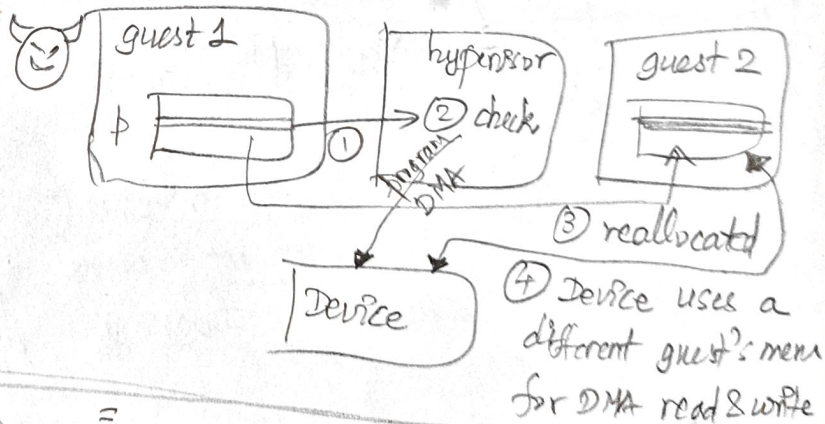 guest 1
hypervisor
guest 2
p
① 
② check
program
DMA
③ reallocated
Device
④ Device uses a
different guest's mem
for DMA read & write
=